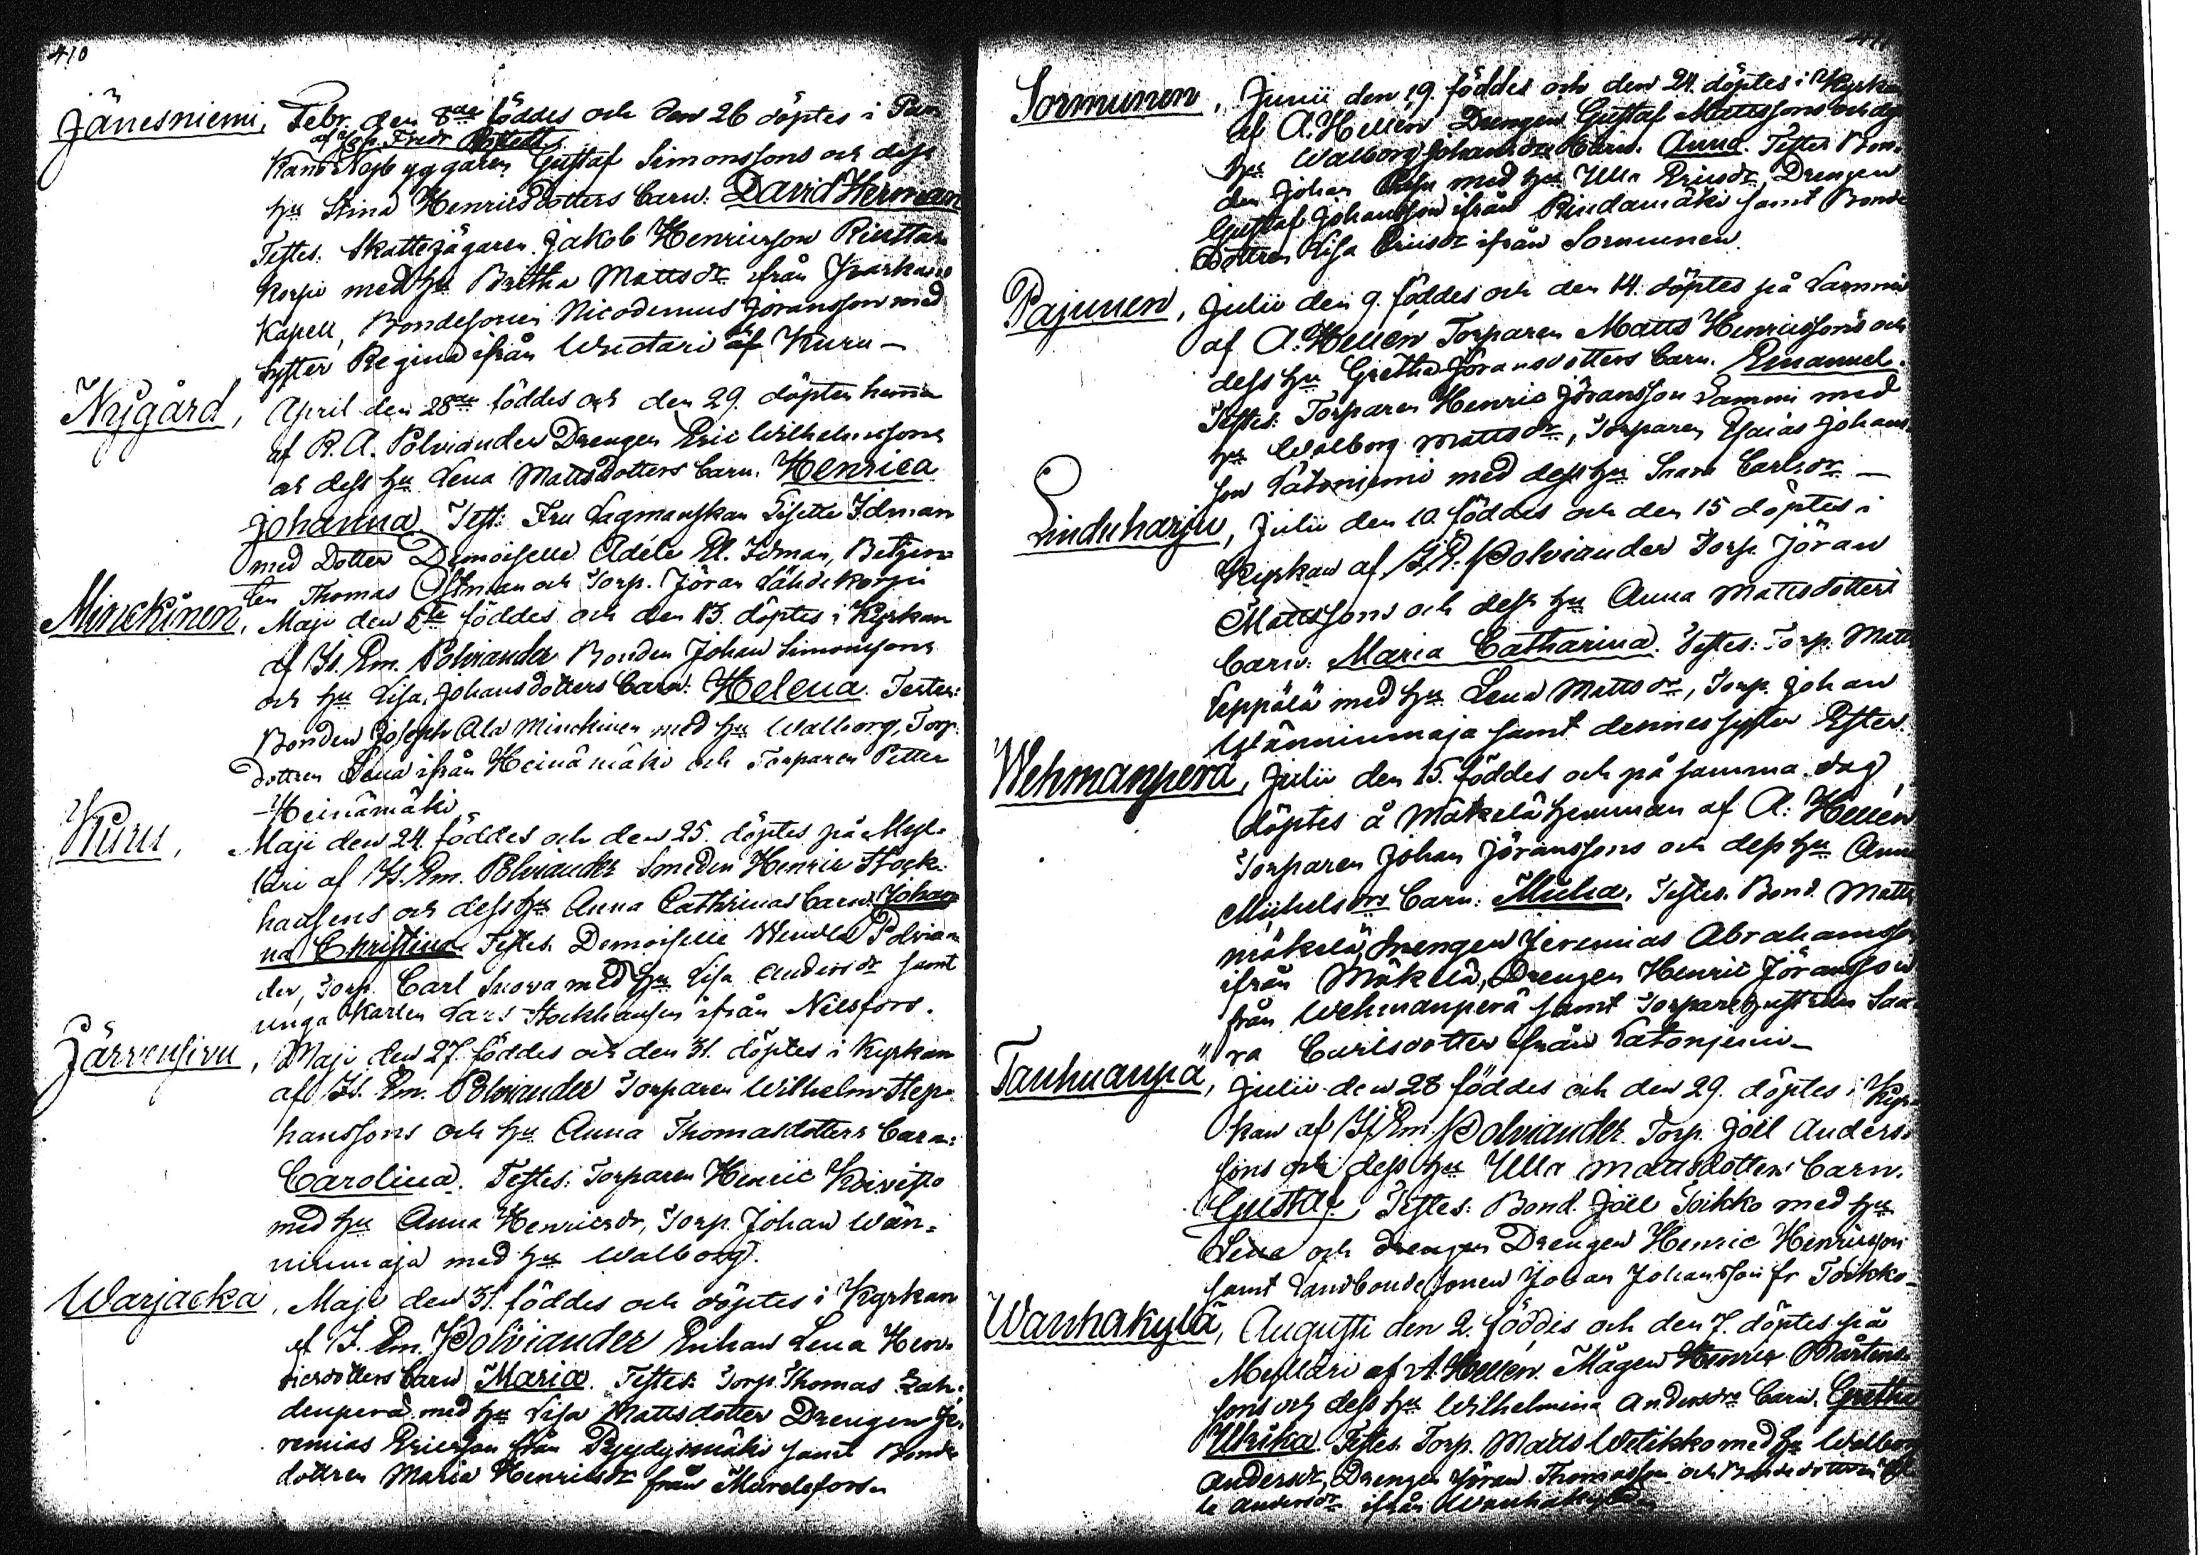 410
Jänesniemi, Febr. den 8de föddes och den 26 döptes i
af
Kano Nyb yggaren Gustaf Simonssons och dess
hu Stina Henricsdotters barn: David Herman
Testes. Skattejägaren Jakob Henricsson
korpi med hu Britha Mattsdr ifrån
Kapell, Bondesonen Nicodemus Jöransson med
syster Regina ifrån af Kuru –
Nygård, April den 28de föddes och den 29. döptes hemma
af R. A. Polviander Drengen Eric Wilhelmssons
och dess hu Lena Mattsdotters barn. Henrica
Johanna. Test: Fru Lagmanskan Lisette Idman
med dotter Demoiselle Adéle El. Idman, Betjen-
ten Thomas Östman och Torp. Jöran Lähdekorpi
Minckinen, Maji den 5te föddes och den 13. döptes i Kyrkan
af Is. Em. Polviander Bonden Johan Simonssons
och hu Lisa Johansdotters barn: Helena. Testes:
Bonden Joseph Ala Minckinen med hu Walborg, Torp.
dottren Lena ifrån Heinämäki och Torparen Petter
Heinämäki
Kuru, Maji den 24. föddes och den 25. döptes på Myl-
läri af Is. Em. Polviander Smeden Henric Stock-
hausens och dess hu Anna Cathrinas barn. Johan-
na Christina. Testes. Demoiselle Wendla Polvian-
der, Torp. Carl Suova med hu Lisa Andersdr samt
unga Karlen Lars Stockhausen ifrån Nilsfors.
Järvensivu, Maji den 27. föddes och den 31. döptes i Kyrkan
af Is. Em. Polviander Torparen Wilhelm Step-
hanssons och hu Anna Thomasdotters barn:
Carolina. Testes: Torparen Henric Koivisto
med hu Anna Henricsdr, Torp. Johan Wän-
ninmaja med hu Walborg.
Warjacka, Maji den 31. föddes och döptes i Kyrkan
af I. Em. Polviander Enkan Lena Hen-
ricsdotters barn Maria. Testes: Torp. Thomas Lah-
denperä med hu Lisa Mattsdotter Drengen Je-
remias Ericsson från samt Bonde
dottren Maria Henricsdr från
Sormunen, Junii den 19. föddes och den 24. döptes i Kyrkan
af A. Hellén Drengen Gustaf Mattssons och dess
hu Walborg Johansdrs barn. Anna. Testes Bon-
den Johan med hu Ulla Ericsdr, Drengen
Gustaf Johansson ifrån Rindamäki samt Bonde
dottren Lisa Ericsdr ifrån Sormunen.
Pajunen, Julii den 9. föddes och den 14. döptes på Lammi
af A. Hellén, Torparen Matts Henricssons och
dess hu Gretha Jöransdotters barn. Emanuel.
Testes: Torparen Henric Jöransson Lammi med
hu Walborg Mattsdr, Torparen Esaias Johans-
son Latoniemi med dess hu Saara Carlsdr –
Linduharju, Julii den 10. föddes och den 15 döptes i
Kyrkan af Polviander Torp. Jöran
Mattssons och dess hu Anna Mattsdotters
barn: Maria Catharina. Testes: Torp. Matts
Leppälä med hu Lena Mattsdr, Torp. Johan
Wänninmaja samt dennes syster Ester.
Wehmanperä, Julii den 15. föddes och på samma dag
döptes å Mäkelä hemman af A: Hellén
Torparen Johan Jöranssons och dess hu Anna
Michelsdrs barn: Milia. Testes. Bond. Matts
Mäkelä, Drengen Jeremias Abrahamsson
ifrån Mäkelä, Drengen Henric Jöransson
från Wehmanperä samt Torparehustrun Saa-
ra Carlsdotter ifrån Latoniemi –
Tanhuanpä, Julii den 28 föddes och den 29. döptes i Kyr-
kan af Is. Em. Polviander. Torp. Joël Anders-
sons och dess hu Ulla Mattsdotters barn.
Gustaf, Testes: Bond. Joël Toikko med hu
Lena och Drengen Henric Henricsson
samt Landbondesonen Johan Johansson fr Toikko –
Wanhakylä, Augusti den 2. föddes och den 7. döptes på
Mylläri af A. Hellén. Mågen Henric Mårtens-
sons och dess hu Wilhelmina Andersdrs barn. Gretha
Ulrika. Testes. Torp. Matts Wetikko med hu Walborg
Andersdr, Drengen Jöran Thomasson och Bondedottren
Andersdr ifrån Wanhakylä